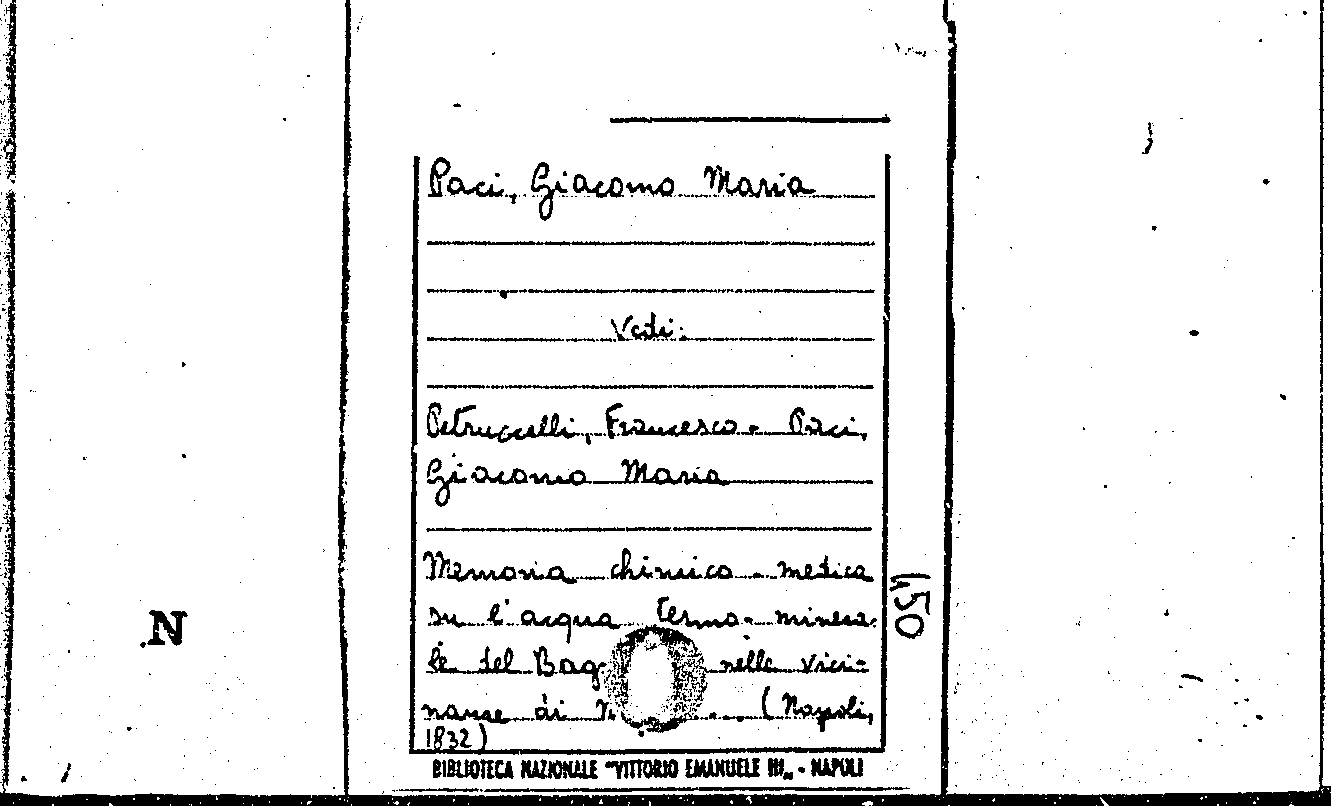 Paci, Giacomo Maria
Vedi:
Petruccelli, Francesco - Paci,
Giacomo Maria
Memoria chimico - medica
su l'acqua termo- minera-
le del nella vici-
nanze di ... (Napoli,
1832)
BIBLIOTECA NAZIONALE "VITTORIO EMANUELE III„ - NAPOLI
N